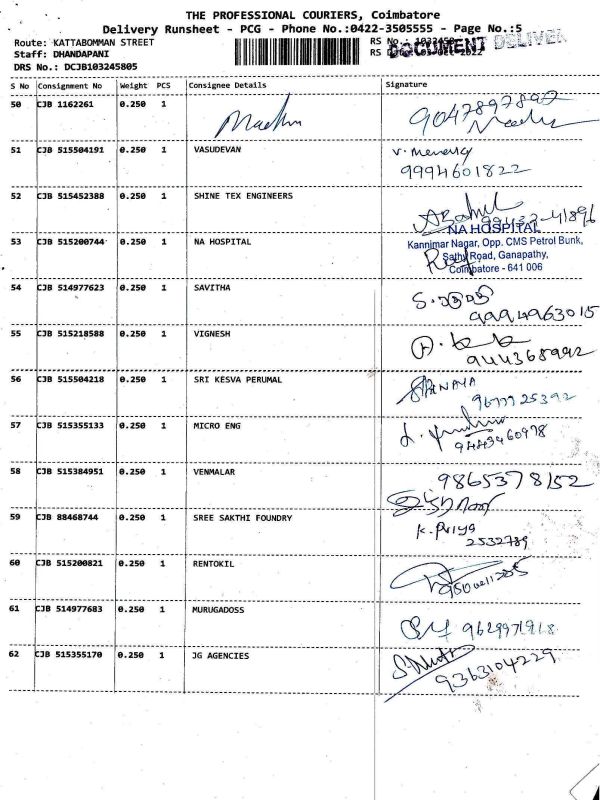 THE PROFESSIONAL COURIERS, Coimbatore
Delivery Runsheet - PCG - Phone No.:0422-3505555 - Page No.:5
Route: KATTABOMMAN STREET
RS No.:
DOCUMENT DELIVER
Staff: DHANDAPANI
DRS No.: DCJB103245805
S No Consignment No Weight PCS Consignee Details Signature
50 CJB 1162261 0.250 1
51 CJB 515504191 0.250 1 VASUDEVAN
9994601822
52 CJB 515452388 0.250 1 SHINE TEX ENGINEERS
53 CJB 515200744 0.250 1 NA HOSPITAL
NA HOSPITAL
Kannimar Nagar, Opp. CMS Petrol Bunk,
Sathy Road, Ganapathy,
Coimbatore - 641 006
54 CJB 514977623 0.250 1 SAVITHA
9994963015
55 CJB 515218588 0.250 1 VIGNESH
56 CJB 515504218 0.250 1 SRI KESVA PERUMAL
57 CJB 515355133 0.250 1 MICRO ENG
9443460978
58 CJB 515384951 0.250 1 VENMALAR
9865378152
59 CJB 88468744 0.250 1 SREE SAKTHI FOUNDRY
K. Priya
2532789
60 CJB 515200821 0.250 1 RENTOKIL
61 CJB 514977683 0.250 1 MURUGADOSS
9629971918
62 CJB 515355170 0.250 1 JG AGENCIES
9363104229